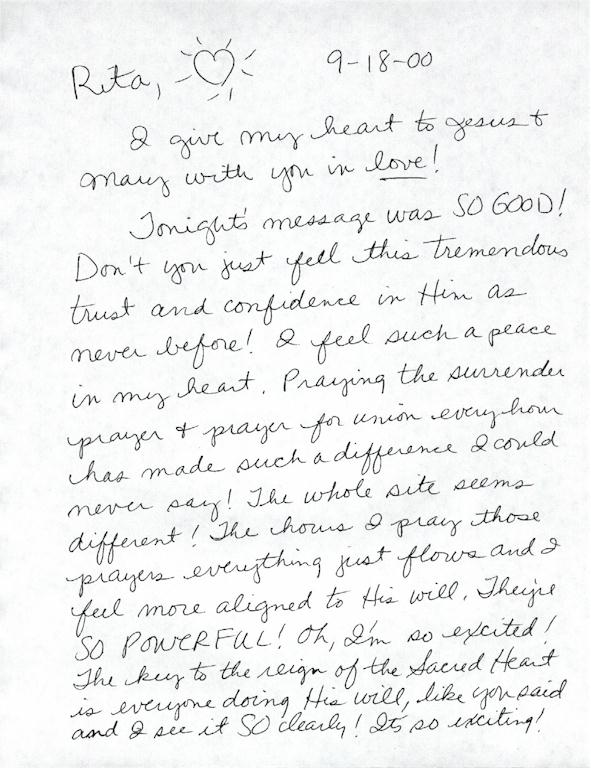 Rita, 9-18-00
I give my heart to Jesus &
Mary with you in love!
Tonight's message was SO GOOD!
Don't you just fell this tremendous
trust and confidence in Him as
never before! I feel such a peace
in my heart. Praying the surrender
prayer & prayer for union every hour
has made such a difference I could
never say! The whole site seems
different! The hours I pray those
prayers everything just flows and I
feel more aligned to His will. They're
SO POWERFUL! Oh, I'm so excited!
The key to the reign of the Sacred Heart
is everyone doing His will, like you said
and I see it SO clearly! Its so exciting!